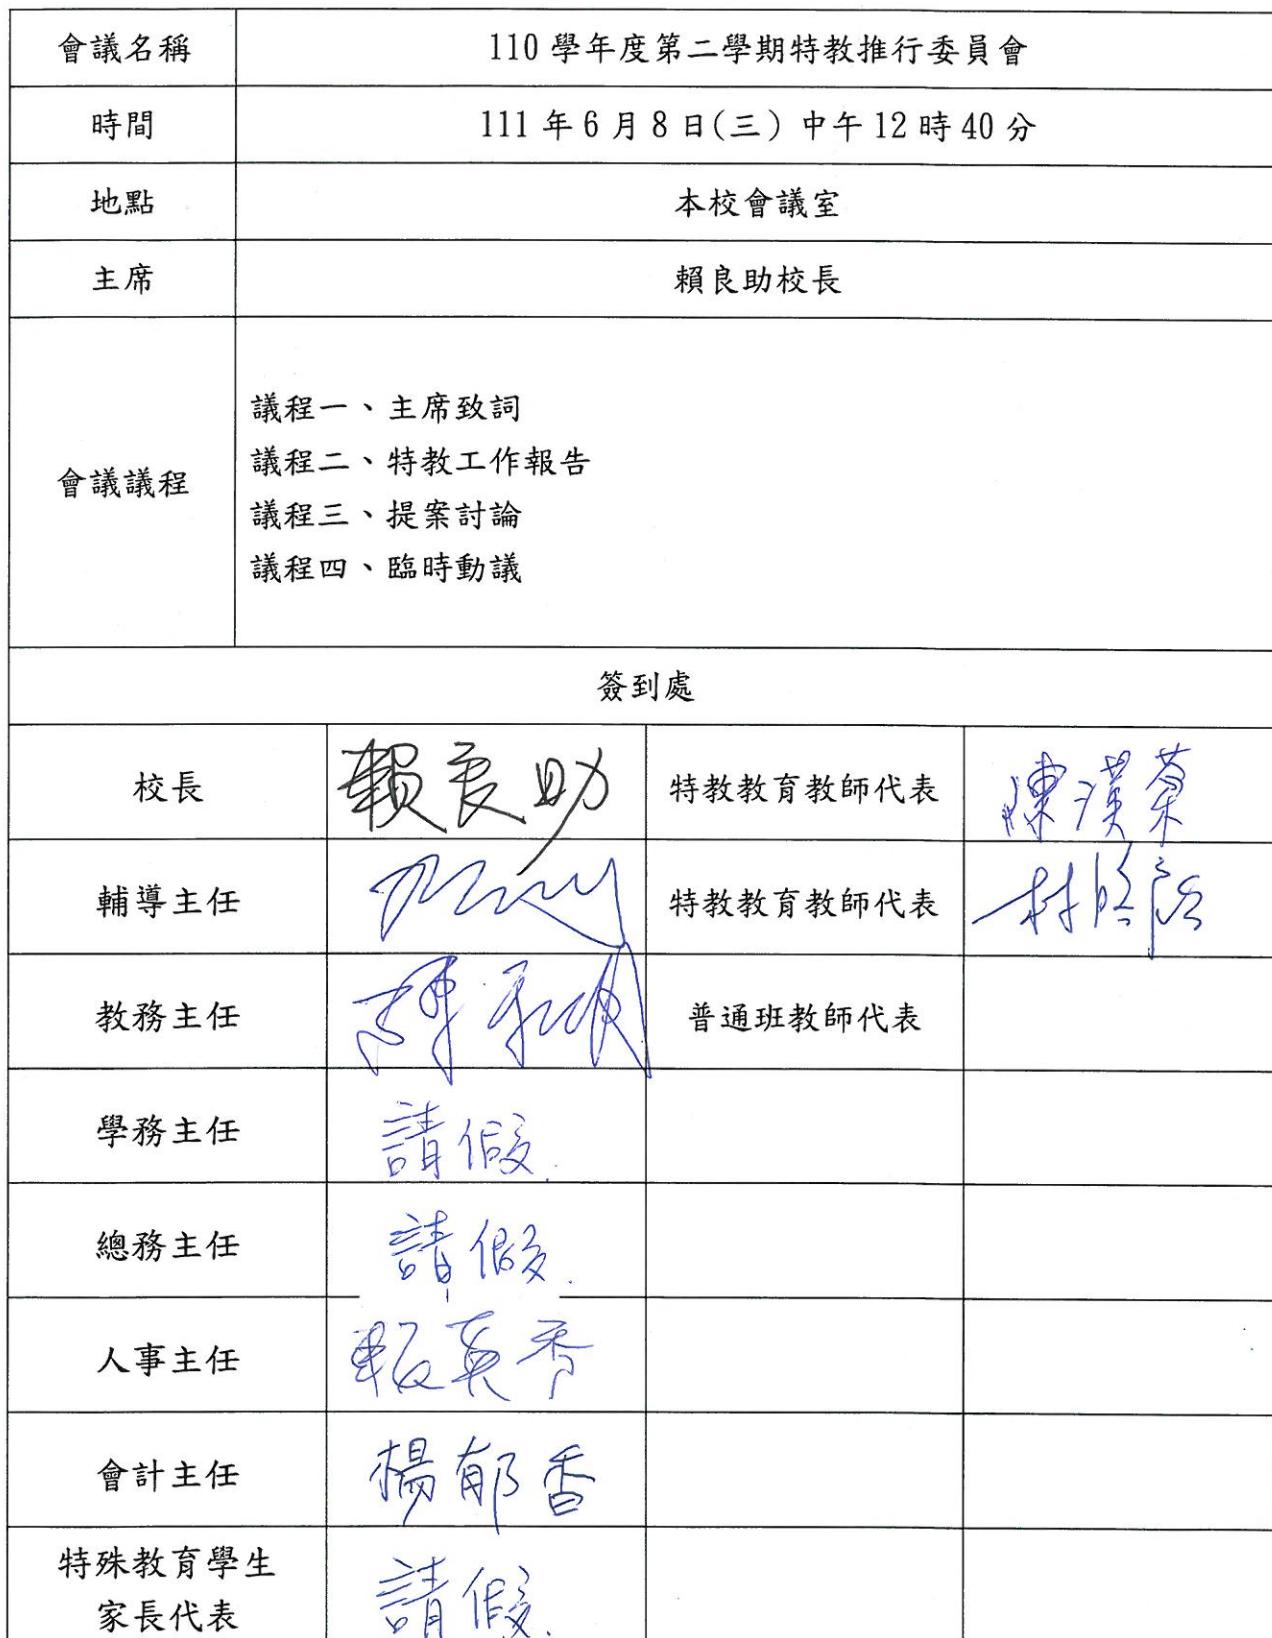 會議名稱 110 學年度第二學期特教推行委員會
時間 111 年 6 月 8 日(三) 中午 12 時 40 分
地點 本校會議室
主席 賴良助校長
會議議程
議程一、主席致詞
議程二、特教工作報告
議程三、提案討論
議程四、臨時動議
簽到處
校長 賴良助 特教教育教師代表 陳漢
輔導主任 特教教育教師代表 林
教務主任 普通班教師代表
學務主任 請假.
總務主任 請假.
人事主任 香
會計主任 楊郁香
特殊教育學生
家長代表 請假.